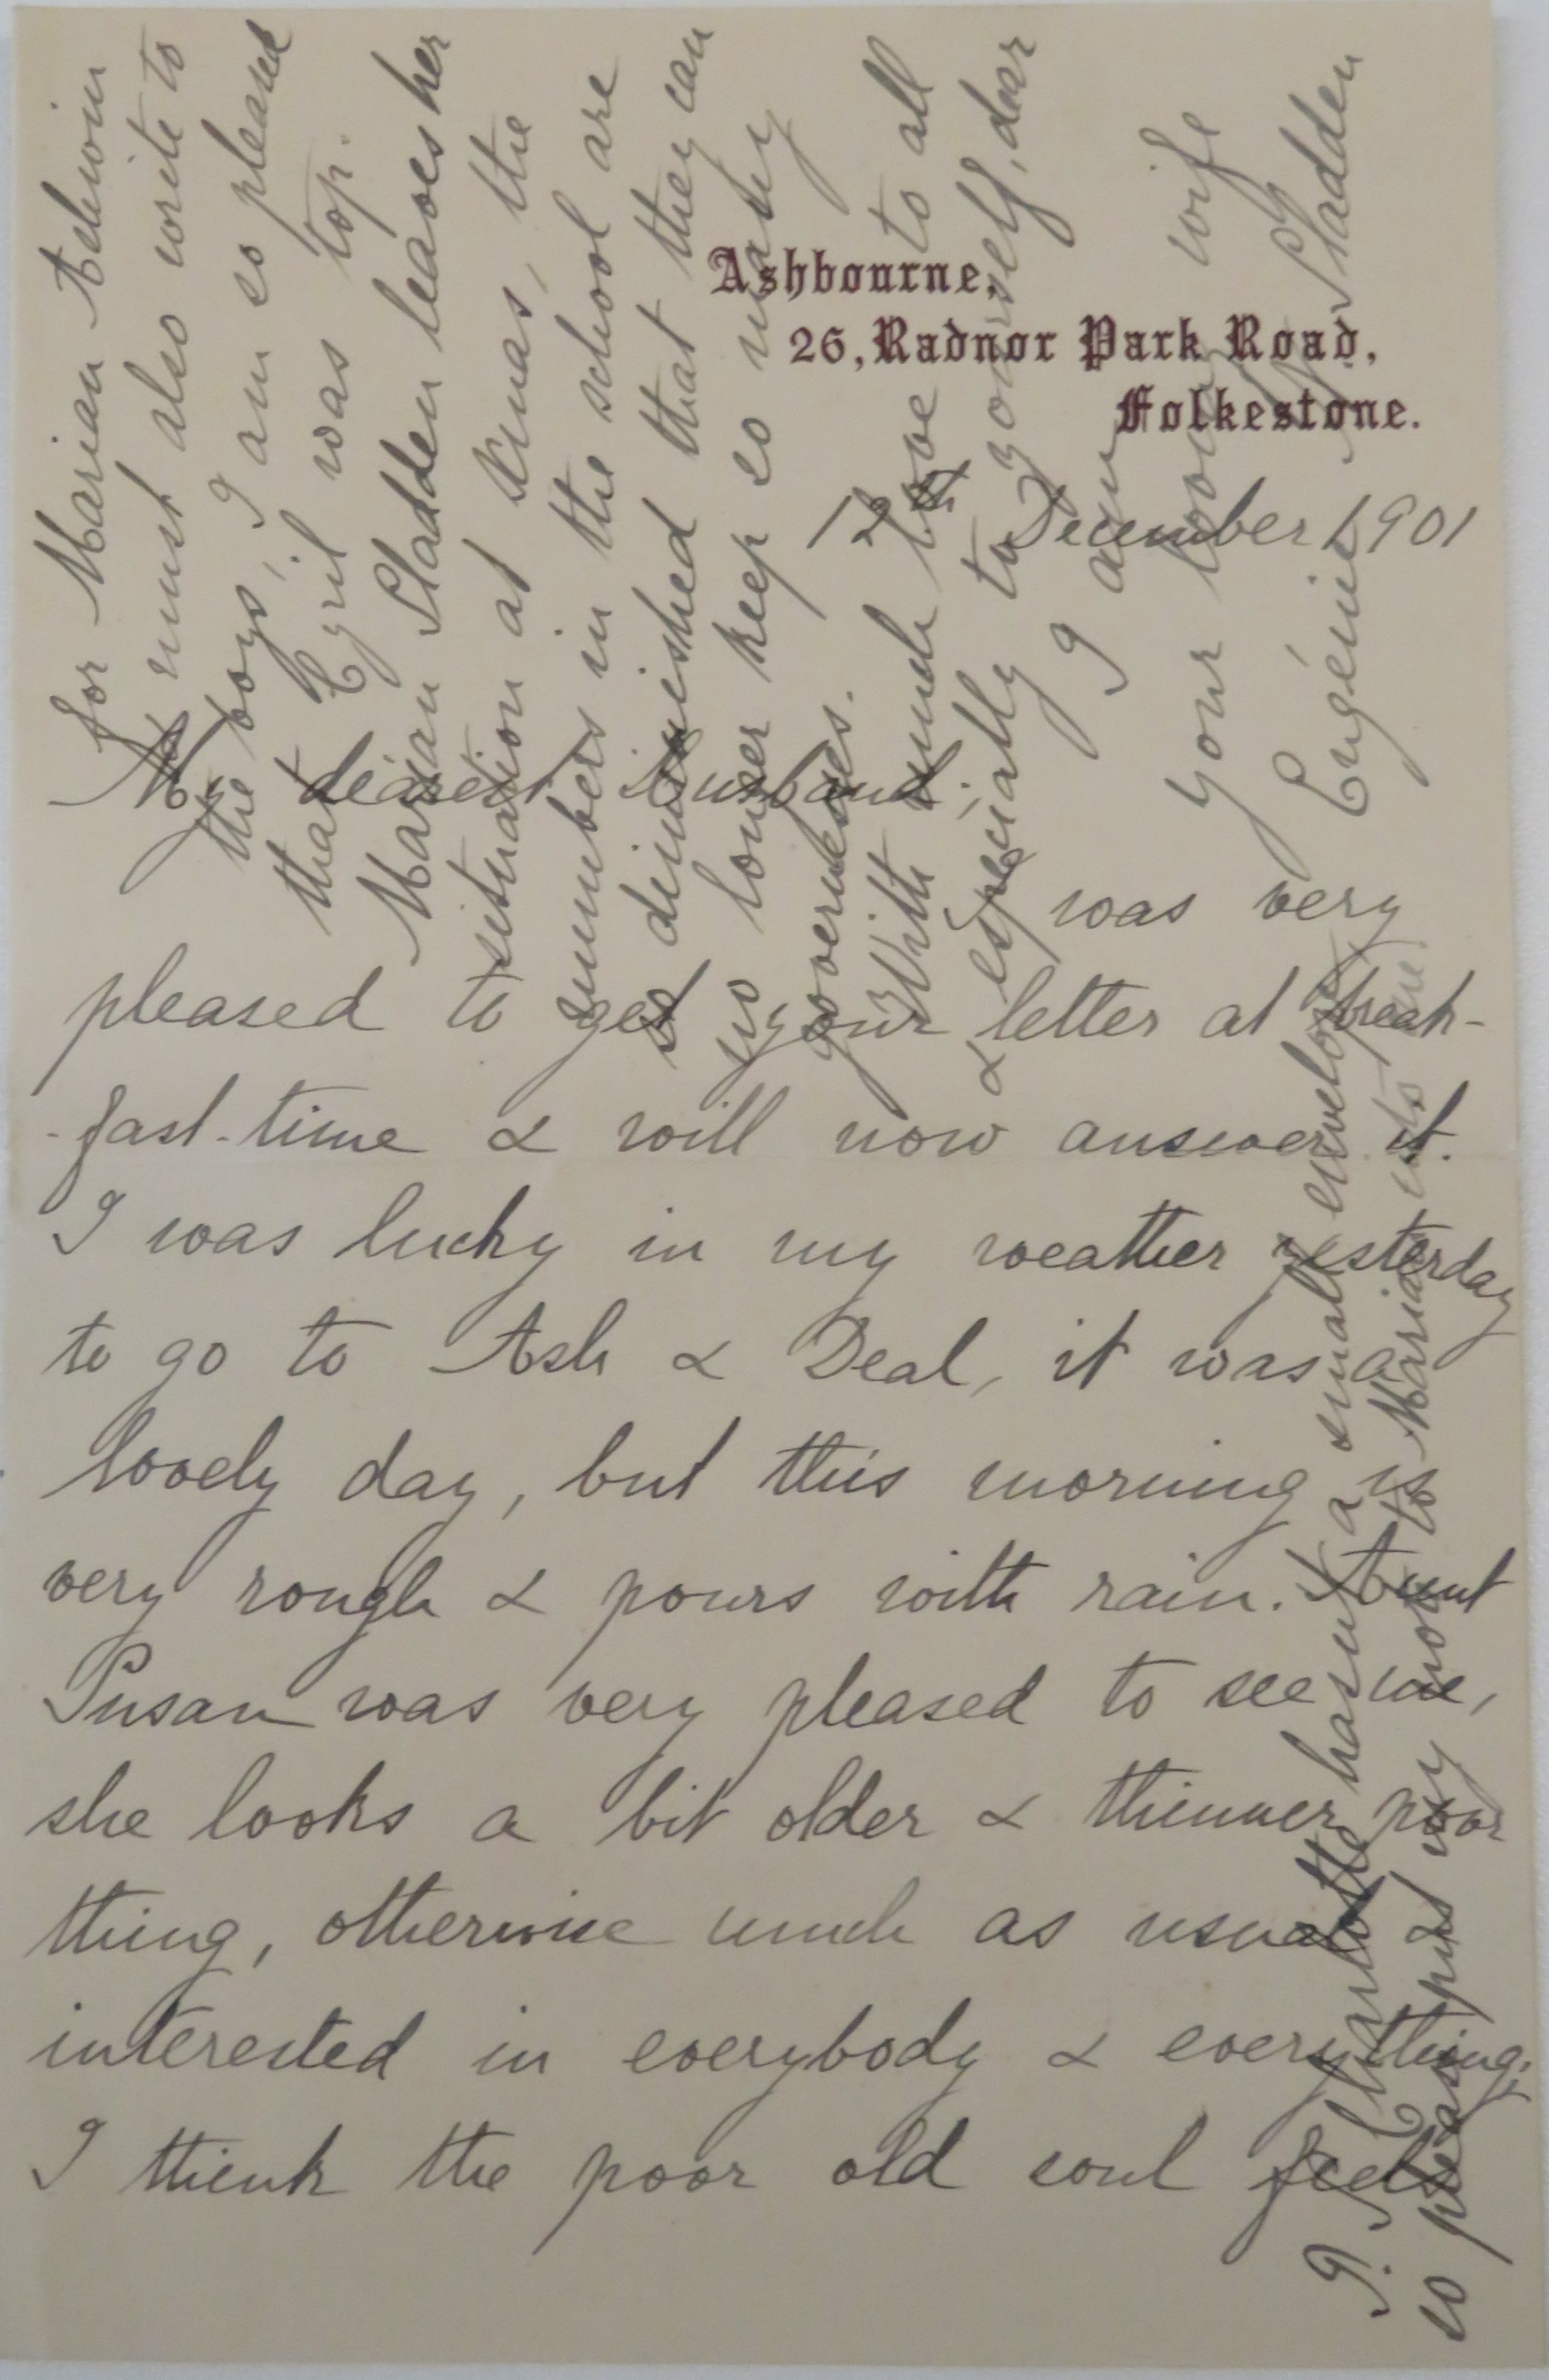 Ashbourne,
26, Radnor Park Road,
Folkestone.
12th December 1901
My dearest Husband,
was very
pleased to get your letter at break-
-fast-time & will now answer it.
I was lucky in my weather yesterday
to go to Ash & Deal, it was a
lovely day, but this morning is
very rough & pours with rain. Aunt
Susan was very pleased to see me,
she looks a bit older & thinner poor
thing, otherwise much as usual &
interested in everybody & everything;
I think the poor old soul feels
for Marian Ashwin
must also write to
the boys, I am so pleased
that Cyril was top.
Marian Sladden leaves her
situation at Xmas, the
numbers in the school are
so diminished that they can
no longer keep so many
governesses.
With much love to all
& especially to yourself, dear
I am
your loving wife
Eugénie N Sladden
P.S. Charlotte hasn't a small envelope
so please put my note to Marian into one